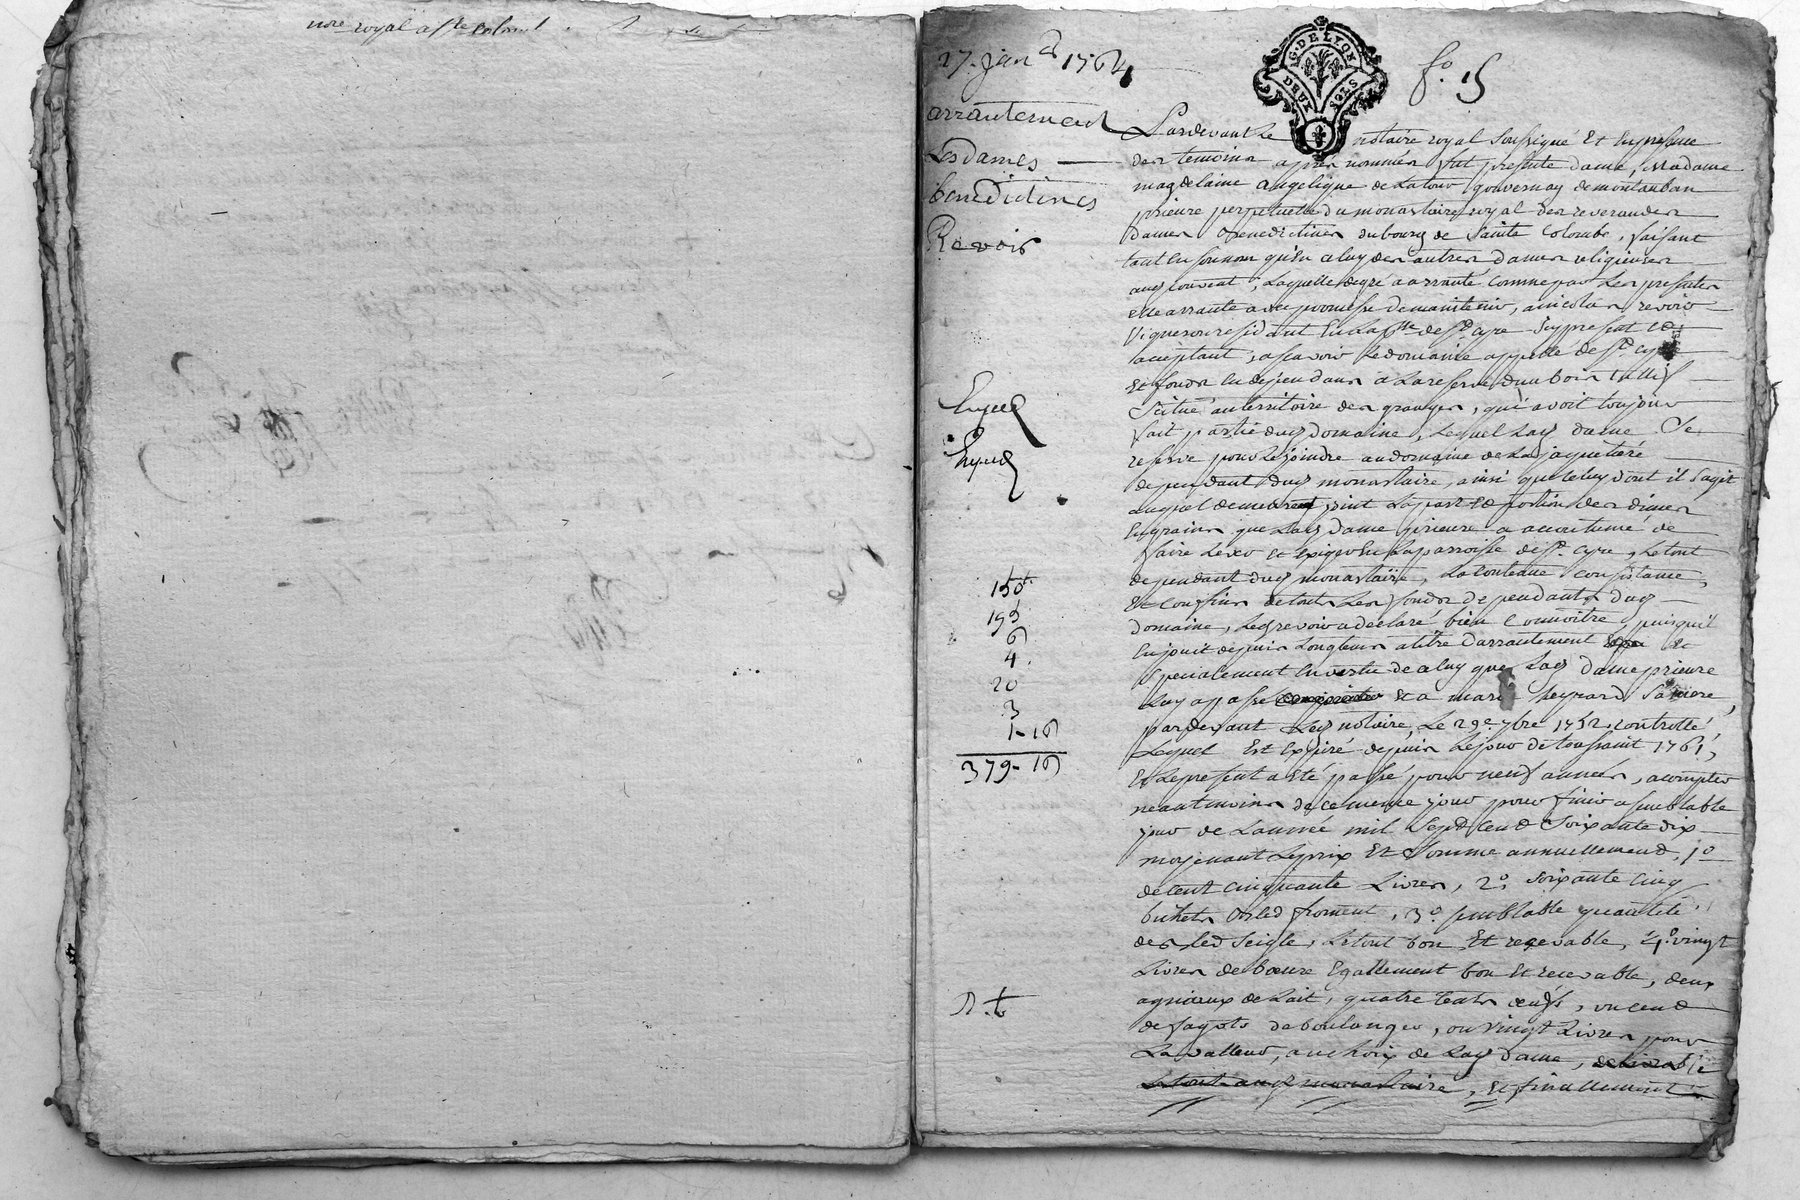 nore royal a ste colombe
27. Janer 1764
G. DE LYON
DEUX SOLS
fo. 15
arrantement
Les dames
benedictines
Revoir
Pardevant Le notaire royal soussigné Et En presence
des temoins après nommés fut presente dame, Madame
magdelaine angelique de Latour gouvernay de montauban
prieure perpetuelle du monastaire royal des reverandes
dames Benedictines du bourg de Sainte Colombe, faisant
tant En son nom qu'En celuy des autres dames religieuses
audt couvent, Laquelle de gré a arranté comme par Les presentes
elle arrante avec promesse de maintenir, a nicolas revoir
Vigneron residant En La psse de St. Cyre Icy present Et
acceptant, a scavoir Le domaine appellé de St. Cyre
Et fonds En dependans a La reserve du bois taillif
Scitué au territoire des granges, qui avoit toujours
fait partie dudt domaine, Lequel Lad. dame Se
reserve pour Le joindre au domaine de La jaquetiere
dependant dudt monastaire, ainsi que celuy dont il S'agit
auquel demeurent joint La part Et portion des dimes
En grains que Lad. dame prieure a accoutumé de
faire Lever Et Exiger En La parroisse de St. Cyre, Le tout
dependant dudt monastaire, La contenue consistance,
Et confins de touts Les fonds dependants dudt
domaine, Led. revoir a declaré bien Connoitre, puisqu'il
En jouit depuis Longtems a titre d'arrantement Et
Specialement En vertu de celuy que Lad. dame prieure
Luy a passé Et a marie peyrard Sa mere,
pardevant Led. notaire, Le 29e. 7bre 1752 controllé,
Lequel Est Expiré depuis Le jour de toussaint 1761,
Et Le present a Eté passé pour neuf années, a compter
neantmoins de ce meme jour pour finir a semblable
jour de L'année mil Sept Cent Soixante dix
moyenant Le prix Et Somme annuellement, 1o.
de Cent Cinquante Livres, 2o. Soixante Cinq
bichets bled froment, 3o. semblable quantité
de bled Seigle, Le tout bon Et recevable, 4o. vingt
Livres de beure Egallement bon Et recevable, deux
agneaux de Lait, quatre cents œufs, un cent
de fagots de boulanger, ou vingt Livres pour
La valleur, au choix de Lad. dame, delivrable
Le tout audt monastaire, Et finallement
Exped.
Exped.
150
195
6
4.
20
3
1-16
379-16